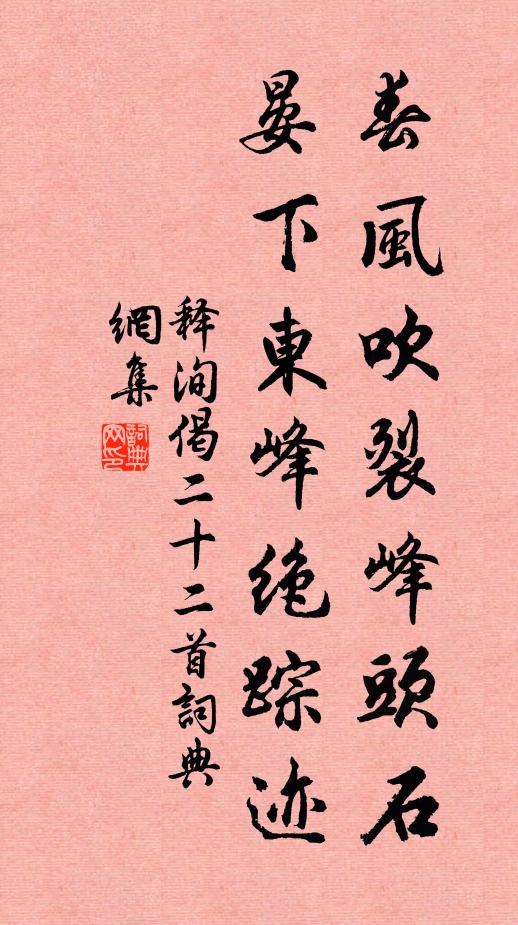 春風吹裂峰頭石
晏下東峰绝踪迹
释洵偈二十二首詞典
網集
詞典網印